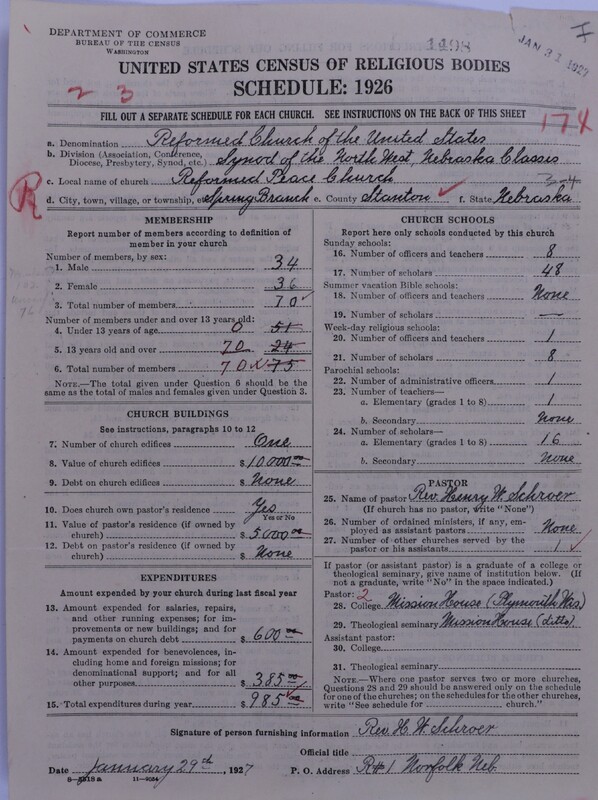 DEPARTMENT OF COMMERCE
BUREAU OF THE CENSUS
WASHINGTON
1498
JAN 31 1927
UNITED STATES CENSUS OF RELIGIOUS BODIES
SCHEDULE: 1926
2 3
FILL OUT A SEPARATE SCHEDULE FOR EACH CHURCH. SEE INSTRUCTIONS ON THE BACK OF THIS SHEET
174
a. Denomination Reformed Church of the United States
b. Division (Association, Conference, Diocese, Presbytery, Synod, etc.) Synod of the North West, Nebraska Classis
c. Local name of church Reformed Peace Church
3-4
R
d. City, town, village, or township, Spring Branch e. County Stanton f. State Nebraska
MEMBERSHIP
Report number of members according to definition of
member in your church
Number of members, by sex:
1. Male 34
2. Female 36
3. Total number of members 70
Number of members under and over 13 years old:
4. Under 13 years of age 0 51
5. 13 years old and over 70 24
6. Total number of members 70 75
NOTE.—The total given under Question 6 should be
same as the total of males and females given under Question 3.
CHURCH BUILDINGS
See instructions, paragraphs 10 to 12
7. Number of church edifices One
8. Value of church edifices $10000 00
9. Debt on church edifices $ None
10. Does church own pastor's residence? Yes
Yes or No
11. Value of pastor's residence (if owned by
church) $5000 00
12. Debt on pastor's residence (if owned by
church) $ None
EXPENDITURES
Amount expended by your church during last fiscal year
13. Amount expended for salaries, repairs,
and other running expenses; for im-
provements or new buildings; and for
payments on church debt $ 600 00
14. Amount expended for benevolences,
including home and foreign missions; for
denominational support; and for all
other purposes $ 385 00
15. Total expenditures during year $ 985 00
CHURCH SCHOOLS
Report here only schools conducted by this church
Sunday schools:
16. Number of officers and teachers 8
17. Number of scholars 48
Summer vacation Bible schools:
18. Number of officers and teachers None
19. Number of scholars —
Week-day religious schools:
20. Number of officers and teachers 1
21. Number of scholars 8
Parochial schools:
22. Number of administrative officers 1
23. Number of teachers—
a. Elementary (grades 1 to 8) 1
b. Secondary None
24. Number of scholars—
a. Elementary (grades 1 to 8) 16
b. Secondary None
PASTOR
25. Name of pastor Rev. Henry W. Schroer
(If church has no pastor, write "None")
26. Number of ordained ministers, if any, em-
ployed as assistant pastors None
27. Number of other churches served by the
pastor or his assistants 1
If pastor (or assistant pastor) is a graduate of a college or
theological seminary, give name of institution below. (If
not a graduate, write "No" in the space indicated.)
Pastor: 2
28. College Mission House (Plymouth Wis)
29. Theological seminary Mission House (ditto)
Assistant pastor:
30. College
31. Theological seminary
NOTE.—Where one pastor serves two or more churches,
Questions 28 and 29 should be answered only on the schedule
for one of the churches; on the schedules for the other churches,
write "See schedule for church."
Signature of person furnishing information Rev. H. W. Schroer
Official title
Date January 29th, 1927 P. O. Address R#1 Norfolk Neb.
11—9084